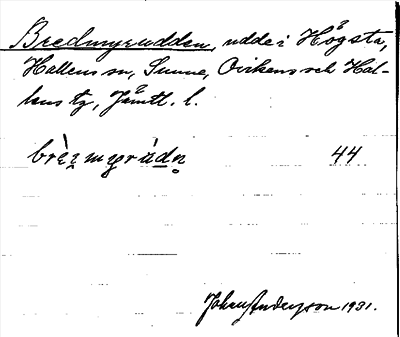 Bredmyrudden, udde i Högsta,
Hallens sn, Sunne, Ovikens och Hal-
lens tg, Jämtl. l.
44
Johan Anderson 1931.